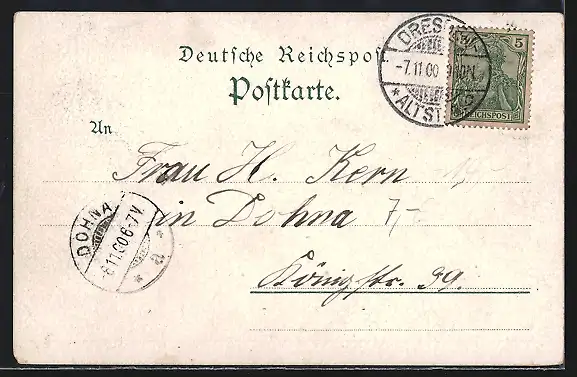 Deutsche Reichspost
Postkarte.
DRESDEN
-7.11.00
*ALTST.
5
REICHSPOST
An
Frau H. Kern
in Dohna 7,-
Königstr. 39.
DOHNA
8.11.00 6-7V.
* a *